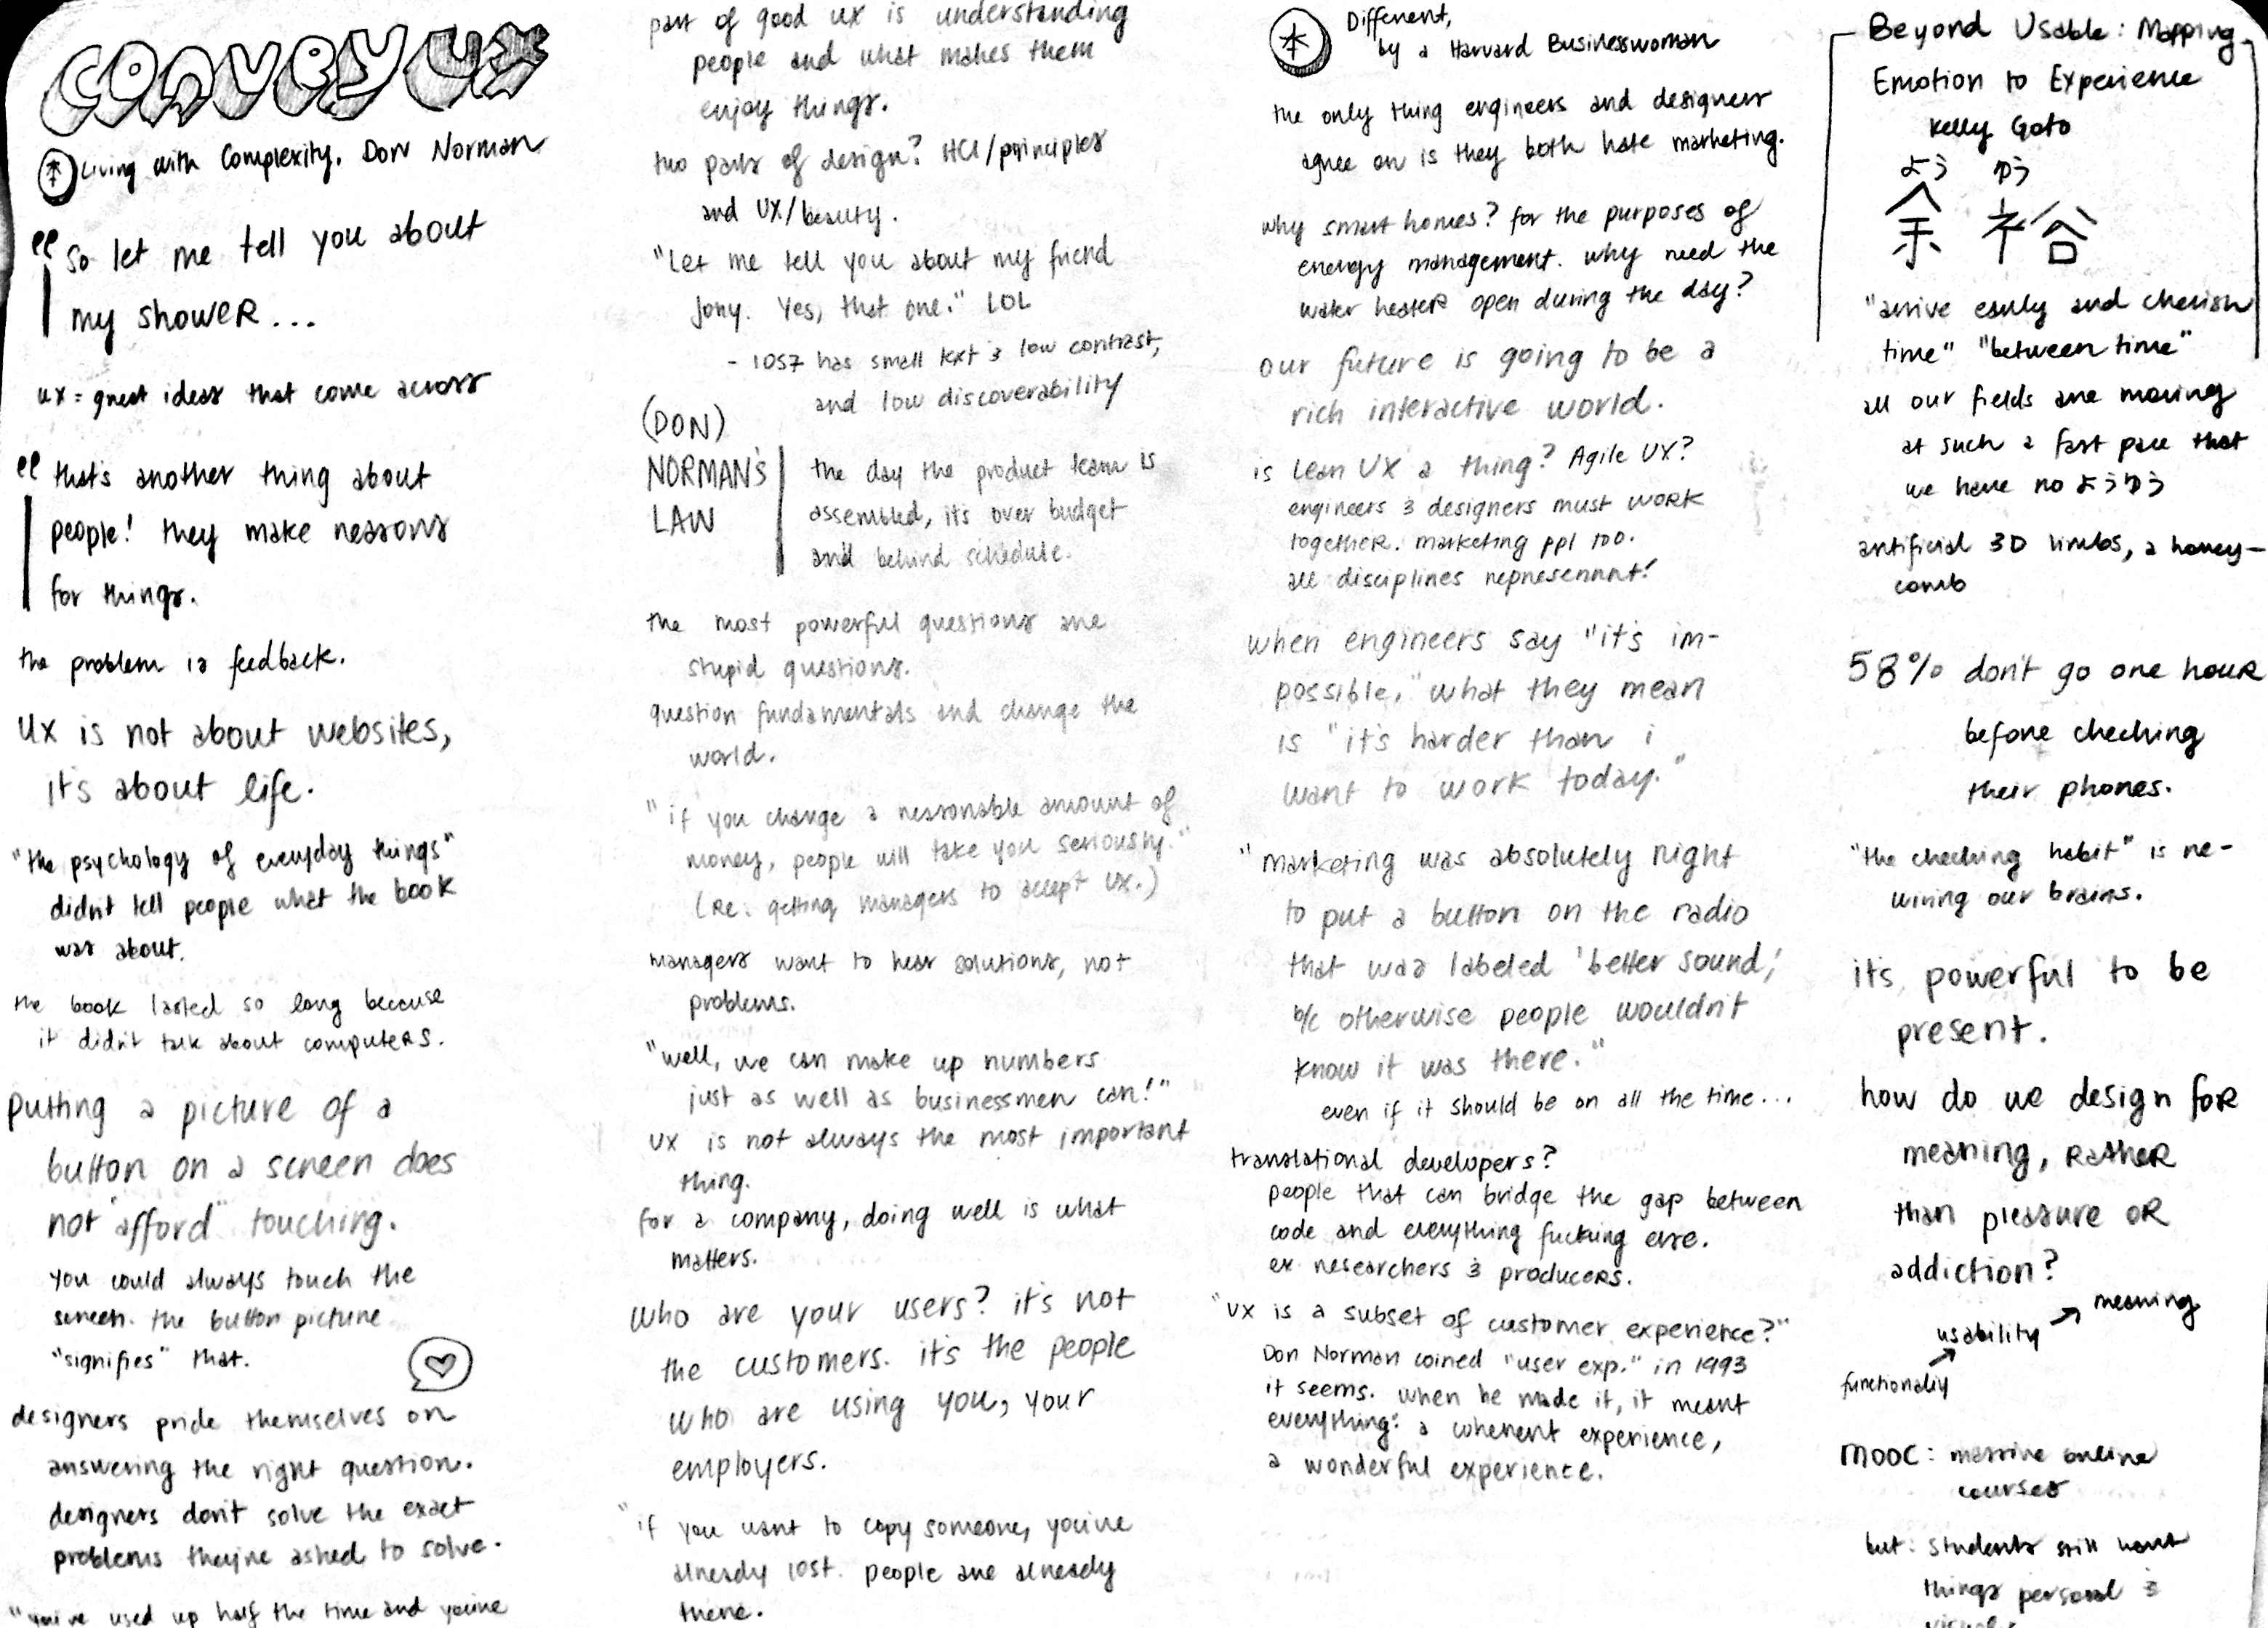 CONVEY UX
Living with Complexity. Don Norman
"so let me tell you about
my shower...
ux = great ideas that come across
"that's another thing about
people! they make reasons
for things.
the problem is feedback.
ux is not about websites,
it's about life.
"the psychology of everyday things"
didn't tell people what the book
was about.
the book lasted so long because
it didn't talk about computers.
putting a picture of a
button on a screen does
not "afford" touching.
you could always touch the
screen. the button picture
"signifies" that.
designers pride themselves on
answering the right question.
designers don't solve the exact
problems they're asked to solve.
"you've used up half the time and you're
part of good ux is understanding
people and what makes them
enjoy things.
two parts of design? HCI/principles
and UX/beauty.
"Let me tell you about my friend
Jony. Yes, that one." LOL
- iOS7 has small text & low contrast,
and low discoverability
(DON)
NORMAN'S
LAW
the day the product team is
assembled, it's over budget
and behind schedule.
the most powerful questions are
stupid questions.
question fundamentals and change the
world.
"if you charge a reasonable amount of
money, people will take you seriously."
(re: getting managers to accept UX.)
managers want to hear solutions, not
problems.
"well, we can make up numbers
just as well as businessmen can!"
UX is not always the most important
thing.
for a company, doing well is what
matters.
who are your users? it's not
the customers. it's the people
who are using you, your
employers.
"if you want to copy someone, you've
already lost. people are already
there.
Different,
by a Harvard Businesswoman
the only thing engineers and designers
agree on is they both hate marketing.
why smart homes? for the purposes of
energy management. why need the
water heater open during the day?
our future is going to be a
rich interactive world.
is Lean UX a thing? Agile UX?
engineers & designers must work
together. marketing ppl too.
all disciplines represennnt!
when engineers say "it's im-
possible," what they mean
is "it's harder than i
want to work today."
"marketing was absolutely right
to put a button on the radio
that was labeled 'better sound,'
b/c otherwise people wouldn't
know it was there."
even if it should be on all the time...
translational developers?
people that can bridge the gap between
code and everything fucking else.
ex researchers & producers.
"UX is a subset of customer experience?"
Don Norman coined "user exp." in 1993
it seems. when he made it, it meant
everything: a coherent experience,
a wonderful experience.
Beyond Usable: Mapping
Emotion to Experience
Kelly Goto
よう ゆう
余 裕
"arrive early and cherish
time" "between time"
all our fields are moving
at such a fast pace that
we have no ようゆう
artificial 3D limbs, a honey-
comb
58% don't go one hour
before checking
their phones.
"the checking habit" is re-
wiring our brains.
it's powerful to be
present.
how do we design for
meaning, rather
than pleasure or
addiction?
meaning
usability
functionality
MOOC: massive online
courses
but: students still want
things personal &
visual